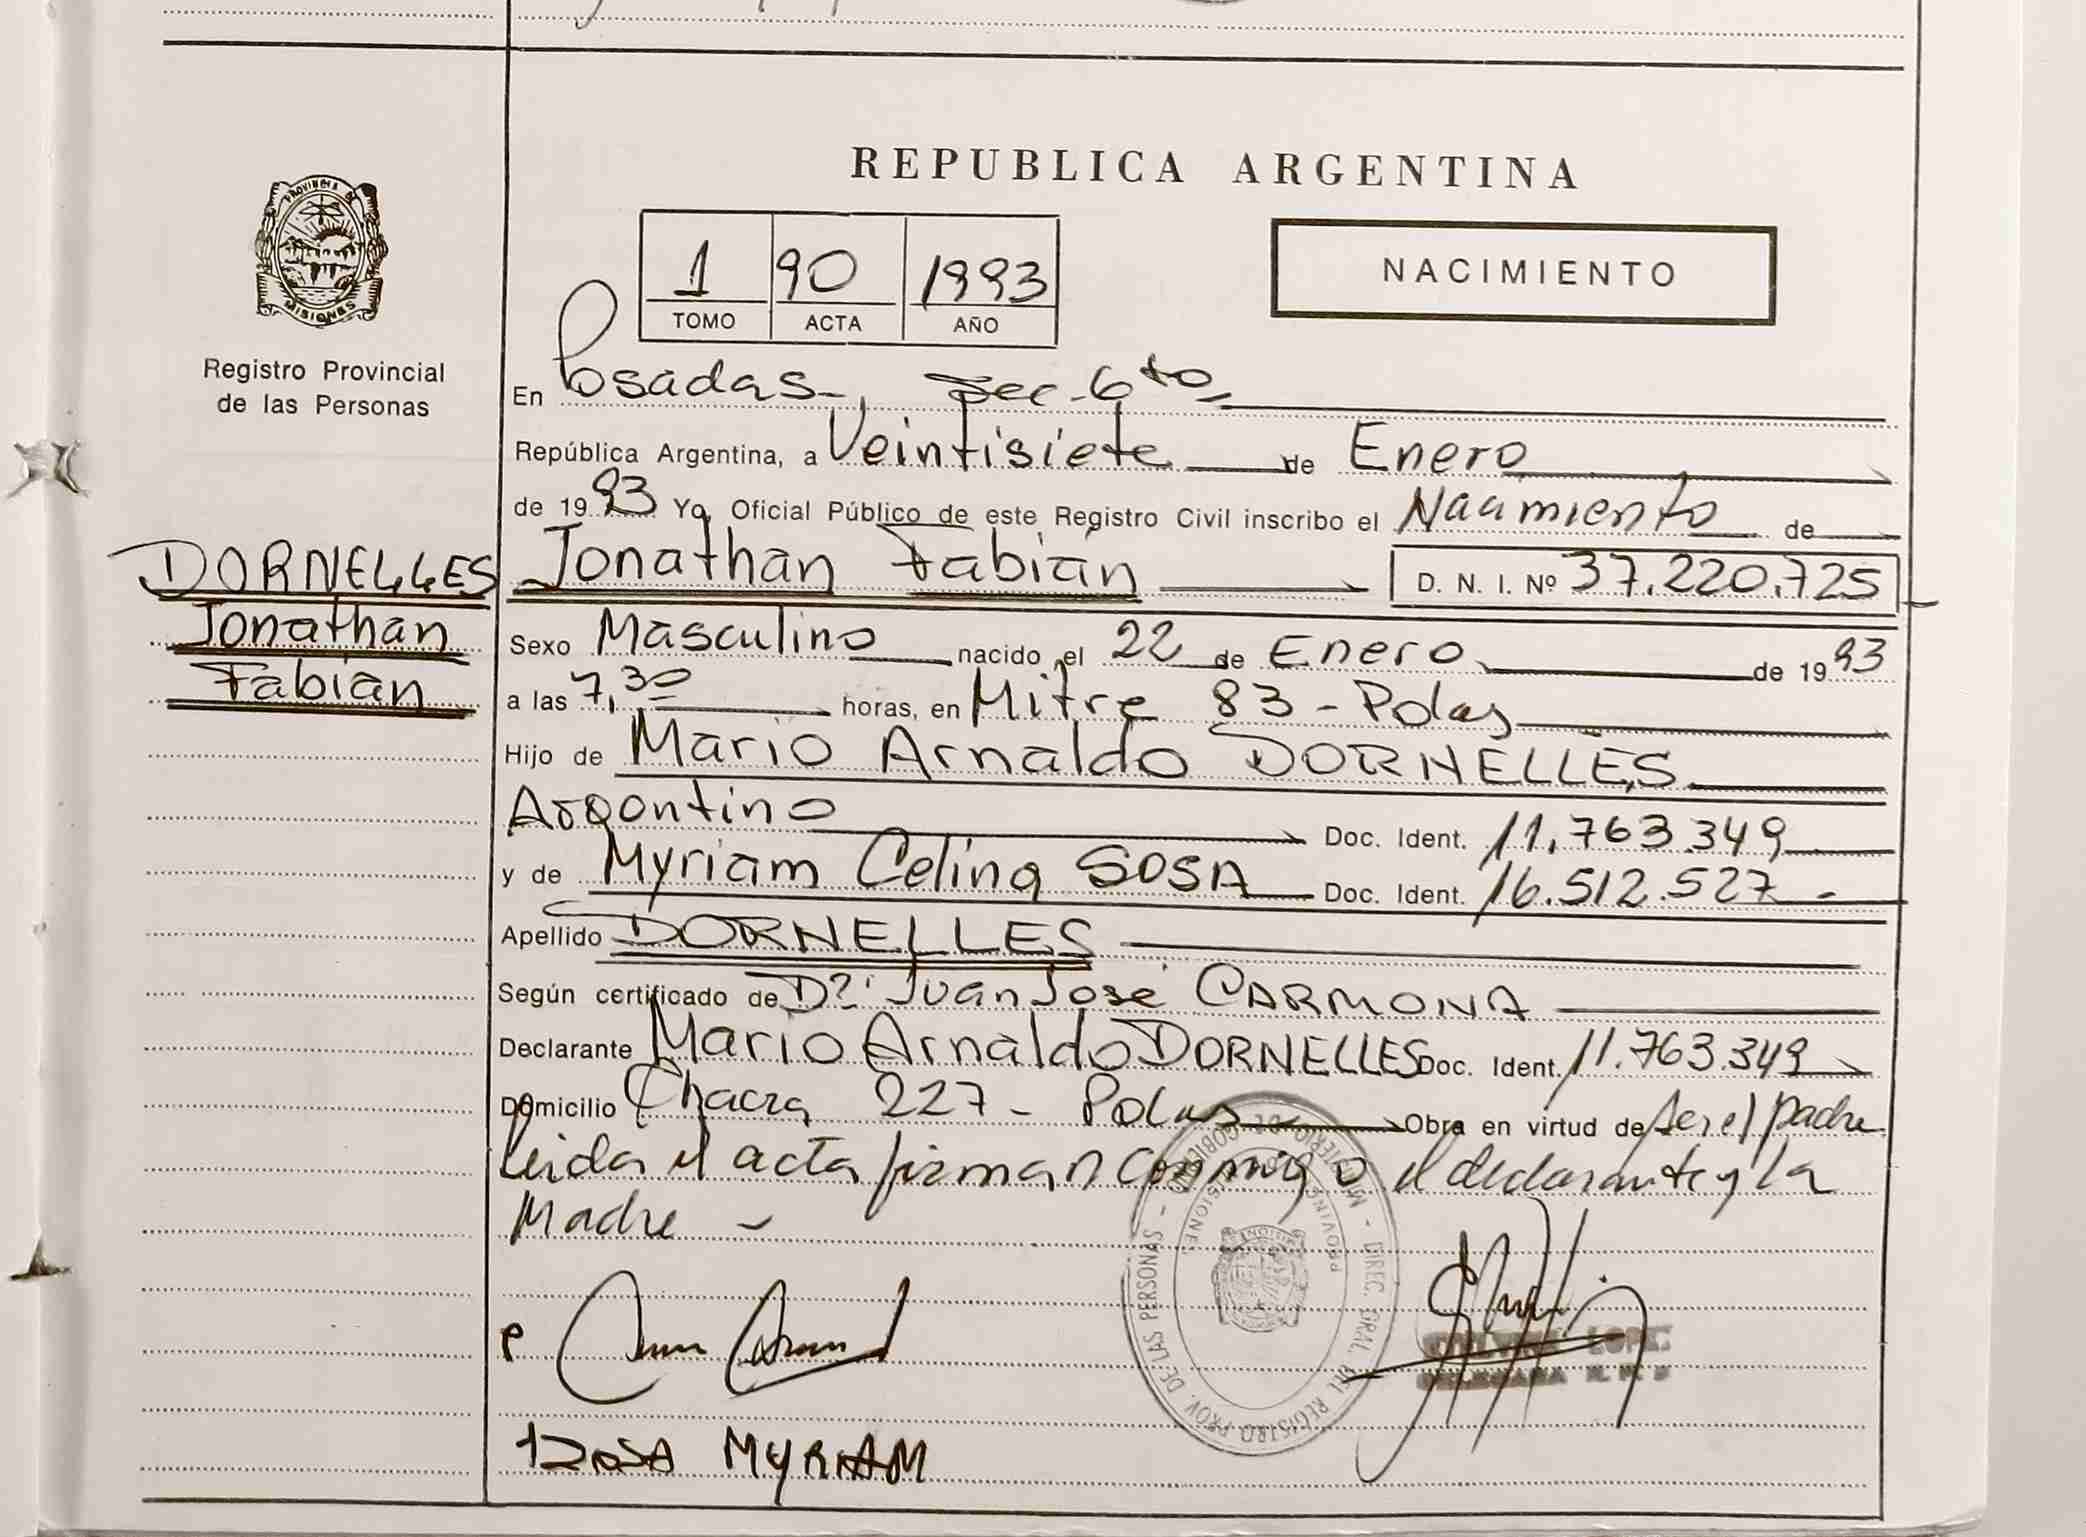 REPUBLICA ARGENTINA
PROVINCIA DE
MISIONES
Registro Provincial
de las Personas
1 90 1993
TOMO ACTA AÑO
NACIMIENTO
En Posadas, Sec. 6to
República Argentina, a Veintisiete de Enero
de 1993 Yo, Oficial Público de este Registro Civil inscribo el Nacimiento de
DORNELLES
Jonathan
Fabian
Jonathan Fabian D. N. I. Nº 37.220.725
Sexo Masculino nacido el 22 de Enero de 1993
a las 7,30 horas, en Mitre 83 - Pdas
Hijo de Mario Arnaldo DORNELLES
Argentino Doc. Ident. 11.763.349
y de Myriam Celina SOSA Doc. Ident. 16.512.527
Apellido DORNELLES
Según certificado de Dr. Juan José CARMONA
Declarante Mario Arnaldo DORNELLES Doc. Ident. 11.763.349
Domicilio Chacra 227 - Pdas Obra en virtud de ser el padre
Leida el acta firman conmigo el declarante y la
Madre -
MINISTERIO DE GOBIERNO - DIREC. GRAL. DEL REGISTRO PROV. DE LAS PERSONAS -
PROVINCIA DE MISIONES
LOPEZ
MYRIAM